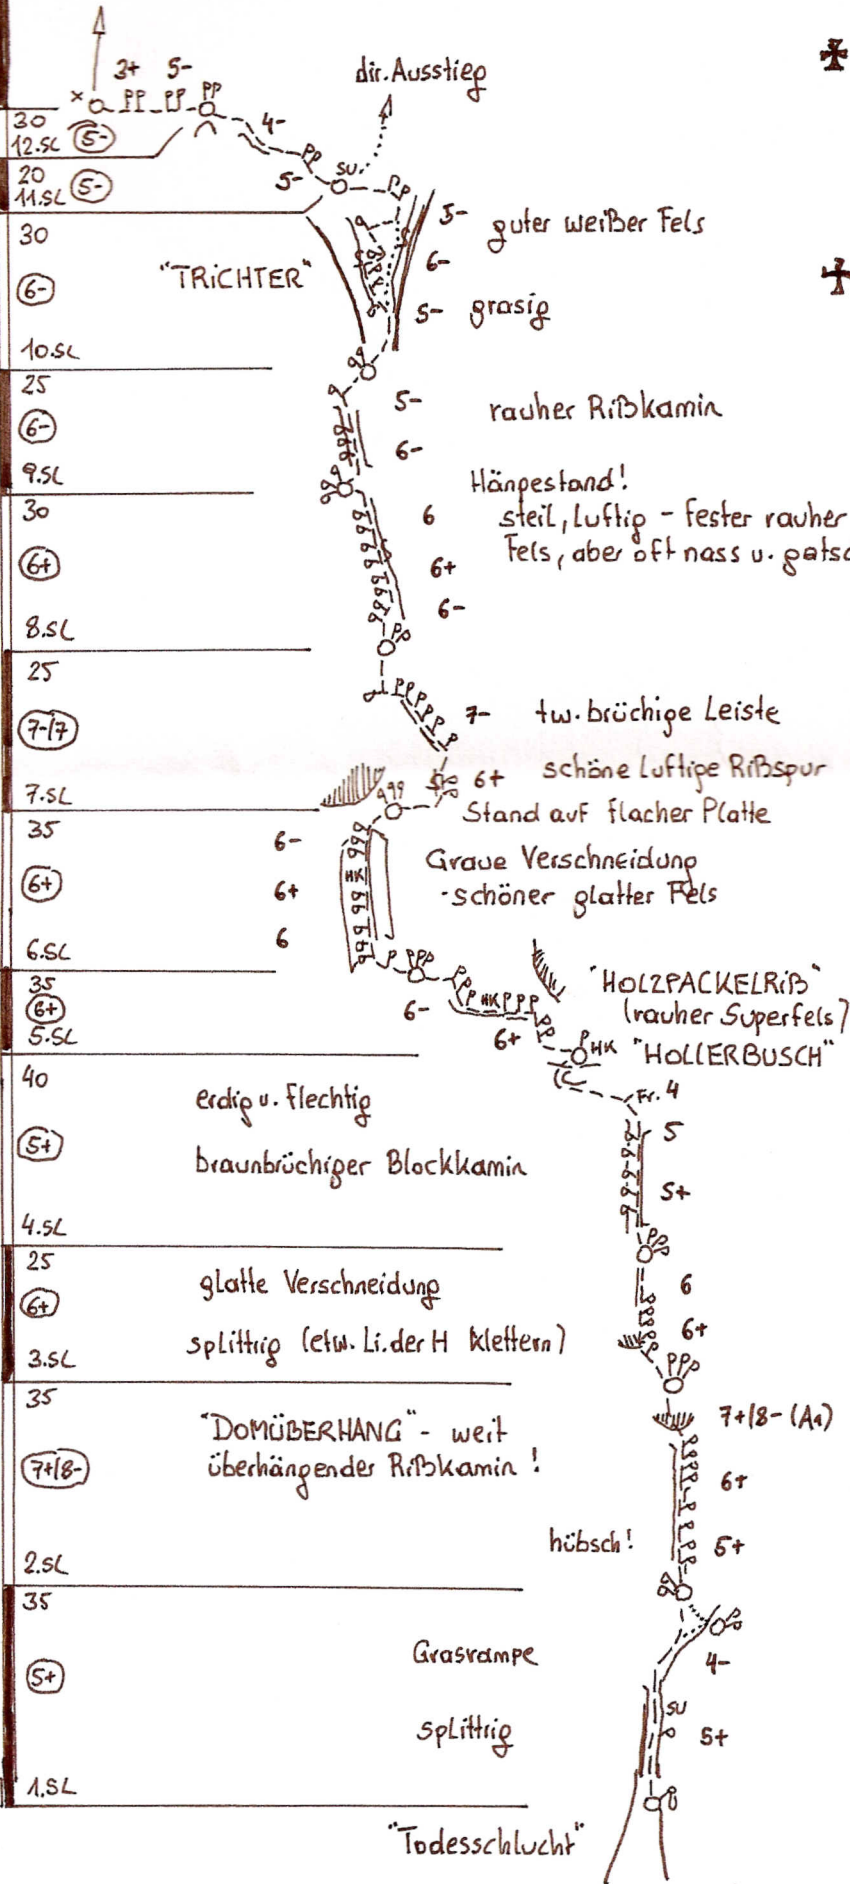 3+ 5-
PP PP PP
x
30
12.SL 5-
4-
PP
dir. Ausstieg
20
11.SL 5-
5-
SU
PP
30
6-
10.SL
"TRICHTER"
5-
guter weißer Fels
6-
5- grasig
25
6-
9.SL
5-
rauher Rißkamin
6-
30
6+
8.SL
Hängestand!
6
steil, luftig - fester rauher
Fels, aber oft nass u.
6+
6-
PP
25
7-/7
7.SL
7- tw. brüchige Leiste
6+ schöne luftige Rißspur
Stand auf flacher Platte
35
6+
6.SL
6-
6+
6
HK
Graue Verschneidung
- schöner glatter Fels
35
6+
5.SL
P PPP PP
P HK PPP
6-
6+
"HOLZPACKELRIß"
(rauher Superfels)
P HK "HOLLERBUSCH"
40
5+
4.SL
erdig u. flechtig
braunbrüchiger Blockkamin
Fr. 4
5
5+
25
6+
3.SL
glatte Verschneidung
splittrig (etw. Li. der H klettern)
6
6+
PPP
35
7+/8-
2.SL
"DOMÜBERHANG" - weit
überhängender Rißkamin!
7+/8- (A1)
6+
hübsch!
5+
35
5+
1.SL
Grasrampe
4-
splittrig
SU
5+
"Todesschlucht"